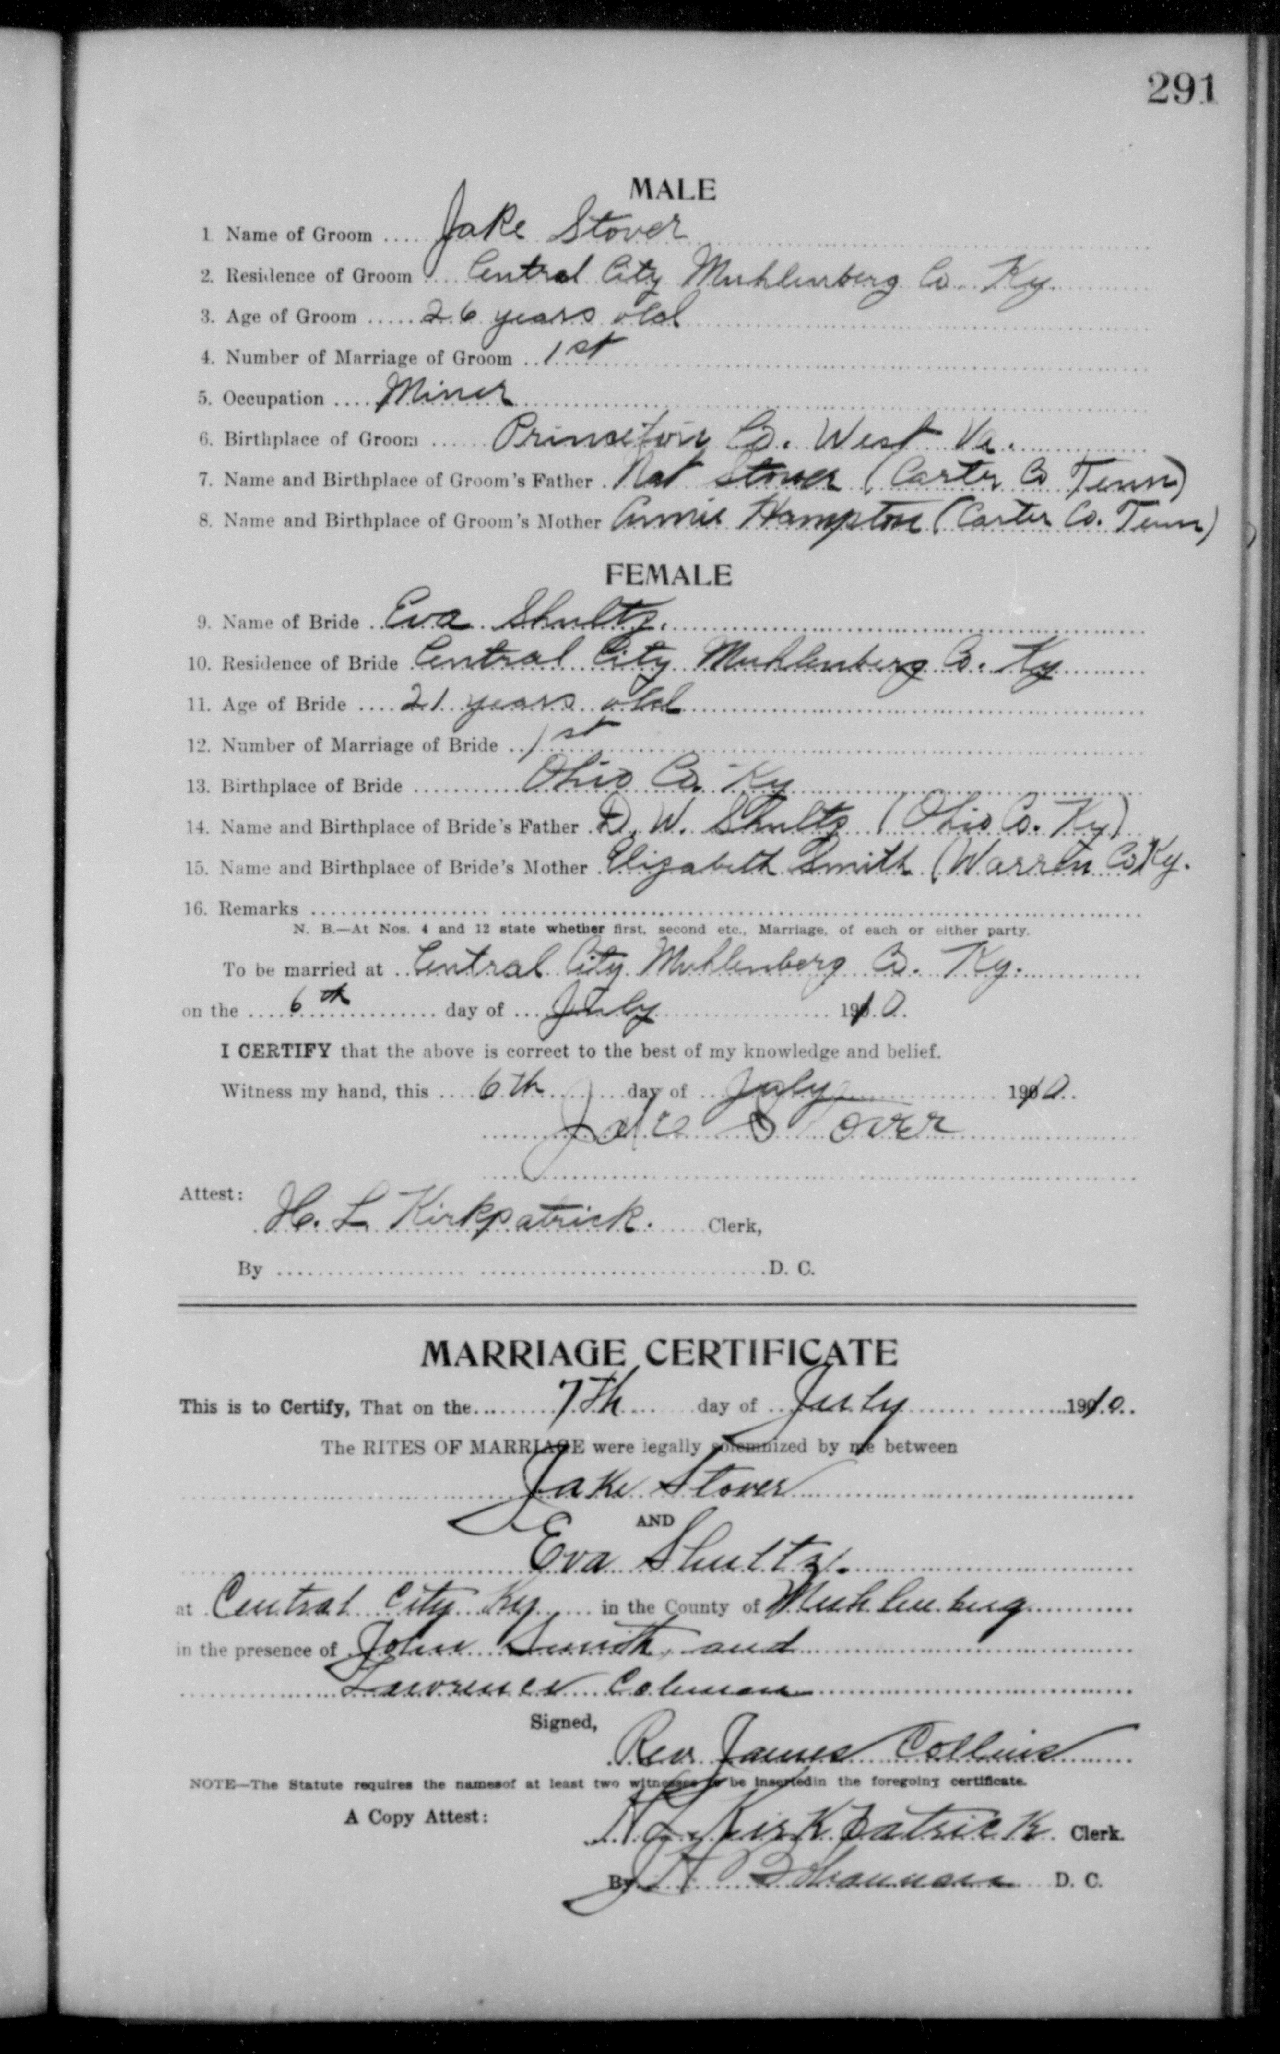 291
MALE
1 Name of Groom .... Jake Stover
2. Residence of Groom .... Central City Muhlenberg Co. Ky.
3. Age of Groom ..... 26 years old
4. Number of Marriage of Groom .. 1st
5. Occupation .... Miner
6. Birthplace of Groom ...... Princeton Co. West Va.
7. Name and Birthplace of Groom's Father . Nat Stover (Carter Co Tenn)
8. Name and Birthplace of Groom's Mother Annie Hampton (Carter Co. Tenn)
FEMALE
9. Name of Bride .. Eva Shultz.
10. Residence of Bride Central City Muhlenberg Co. Ky
11. Age of Bride .... 21 years old
12. Number of Marriage of Bride .. 1st
13. Birthplace of Bride ........... Ohio Co. Ky
14. Name and Birthplace of Bride's Father . D. W. Shultz (Ohio Co. Ky)
15. Name and Birthplace of Bride's Mother . Elizabeth Smith (Warren Co Ky.
16. Remarks ........
N. B.—At Nos. 4 and 12 state whether first, second etc., Marriage, of each or either party.
To be married at .. Central City Muhlenberg Co. Ky.
on the .... 6th ........ day of ... July ........ 1910.
I CERTIFY that the above is correct to the best of my knowledge and belief.
Witness my hand, this .... 6th ....... day of .. July ........ 1910..
Jake Stover
Attest:
H. L Kirkpatrick. ..... Clerk,
By ........ D. C.
MARRIAGE CERTIFICATE
This is to Certify, That on the........ 7th ..... day of .. July ........ 1910..
The RITES OF MARRIAGE were legally solemnized by me between
Jake Stover
AND
Eva Shultz.
at Central City Ky ..... in the County of Muhlenberg
in the presence of John Smith and
Lawrence Coleman
Signed,
Rev James Collins
NOTE—The Statute requires the namesof at least two witnesses to be insertedin the foregoing certificate.
A Copy Attest:
H L Kirkpatrick Clerk.
By J H D. C.